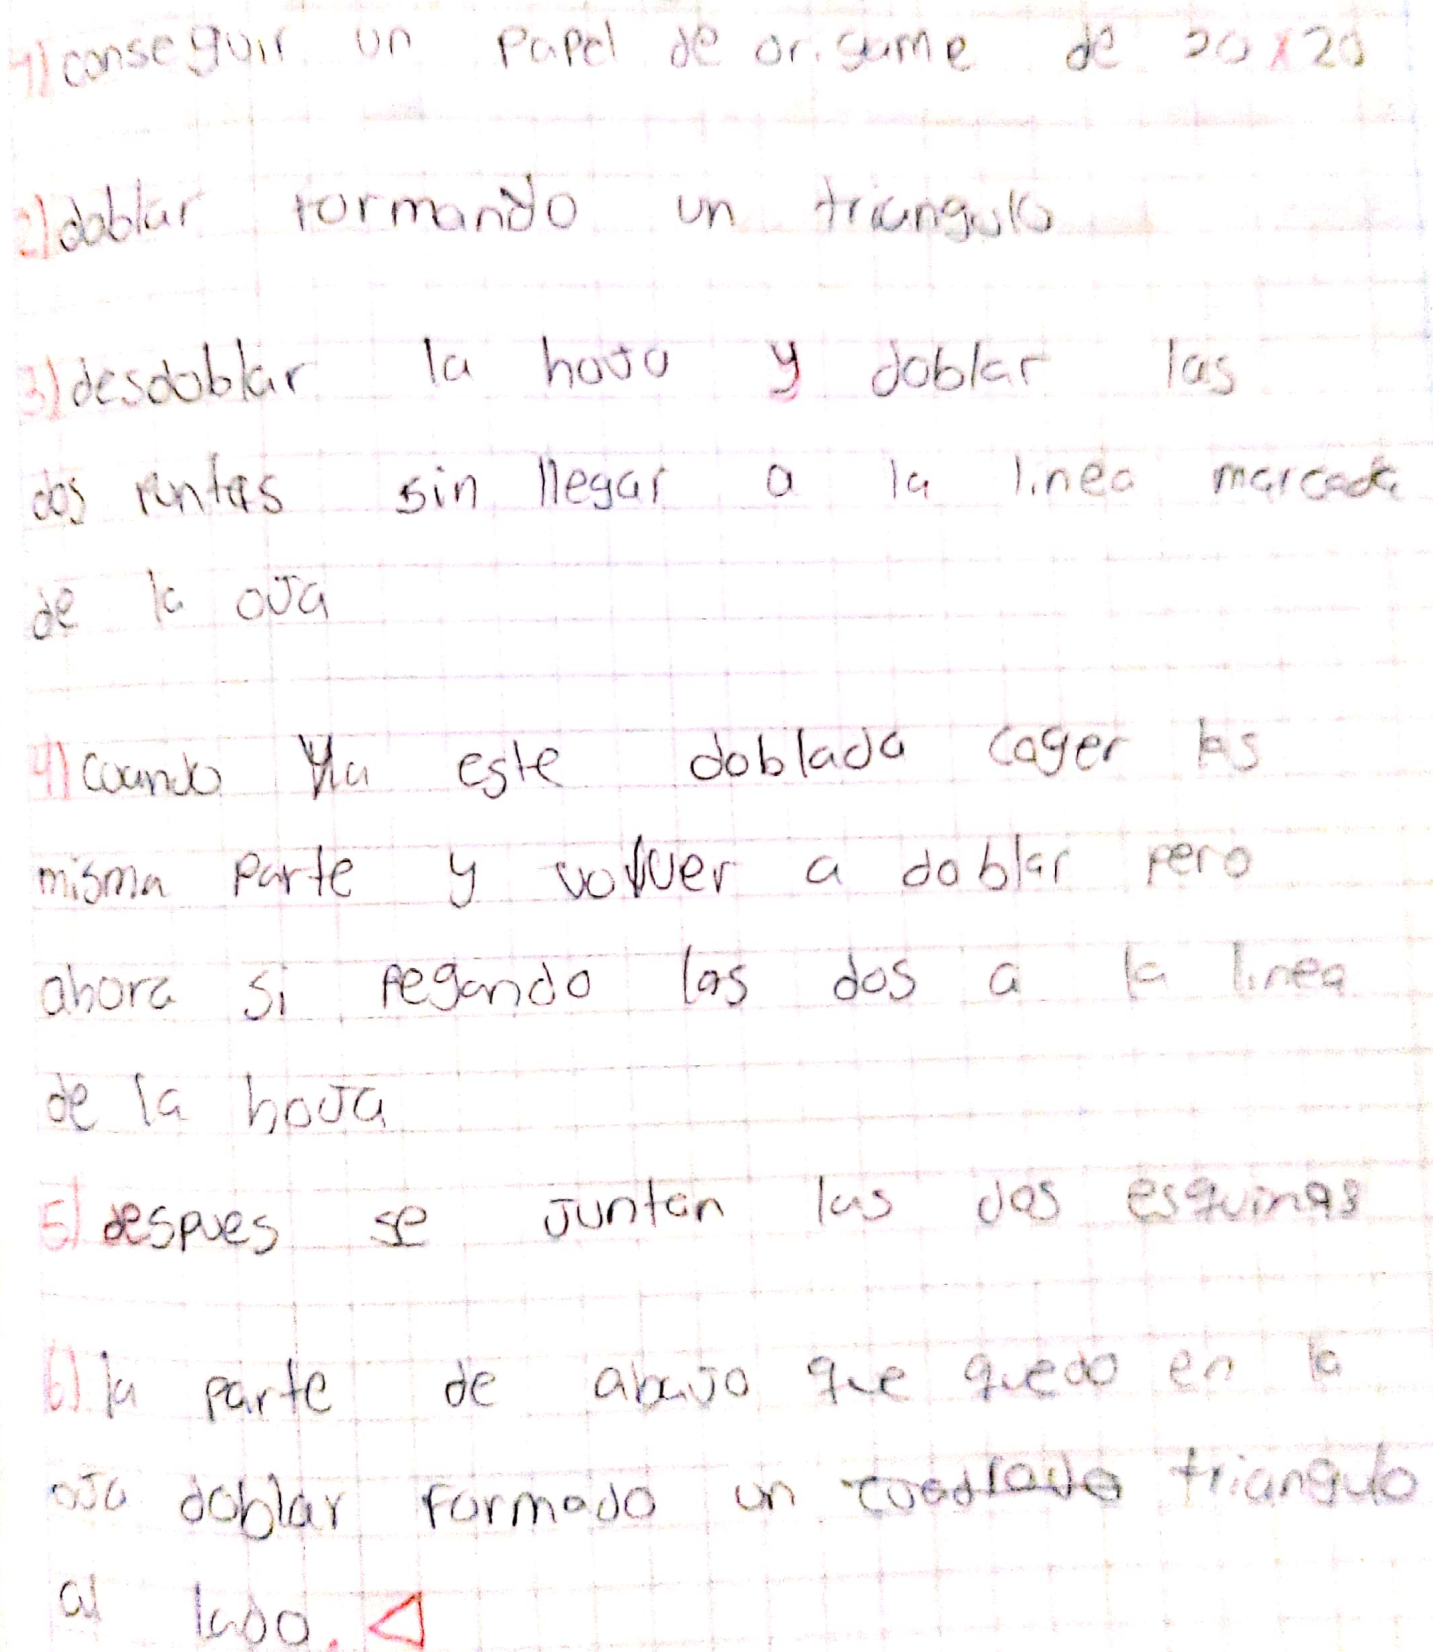 1) conseguir un Papel de origame de 20 x 20
2) doblar formando un triangulo
3) desdoblar la hoja y doblar las
dos puntas sin llegar a la linea marcada
de la oja
4) Cuando ya este doblada coger las
misma parte y volver a doblar pero
ahora si pegando las dos a la linea
de la hoja
5) despues se juntan las dos esquinas
6) la parte de abajo que quedo en la
oja doblar formado un cuadrado triangulo
al lado.